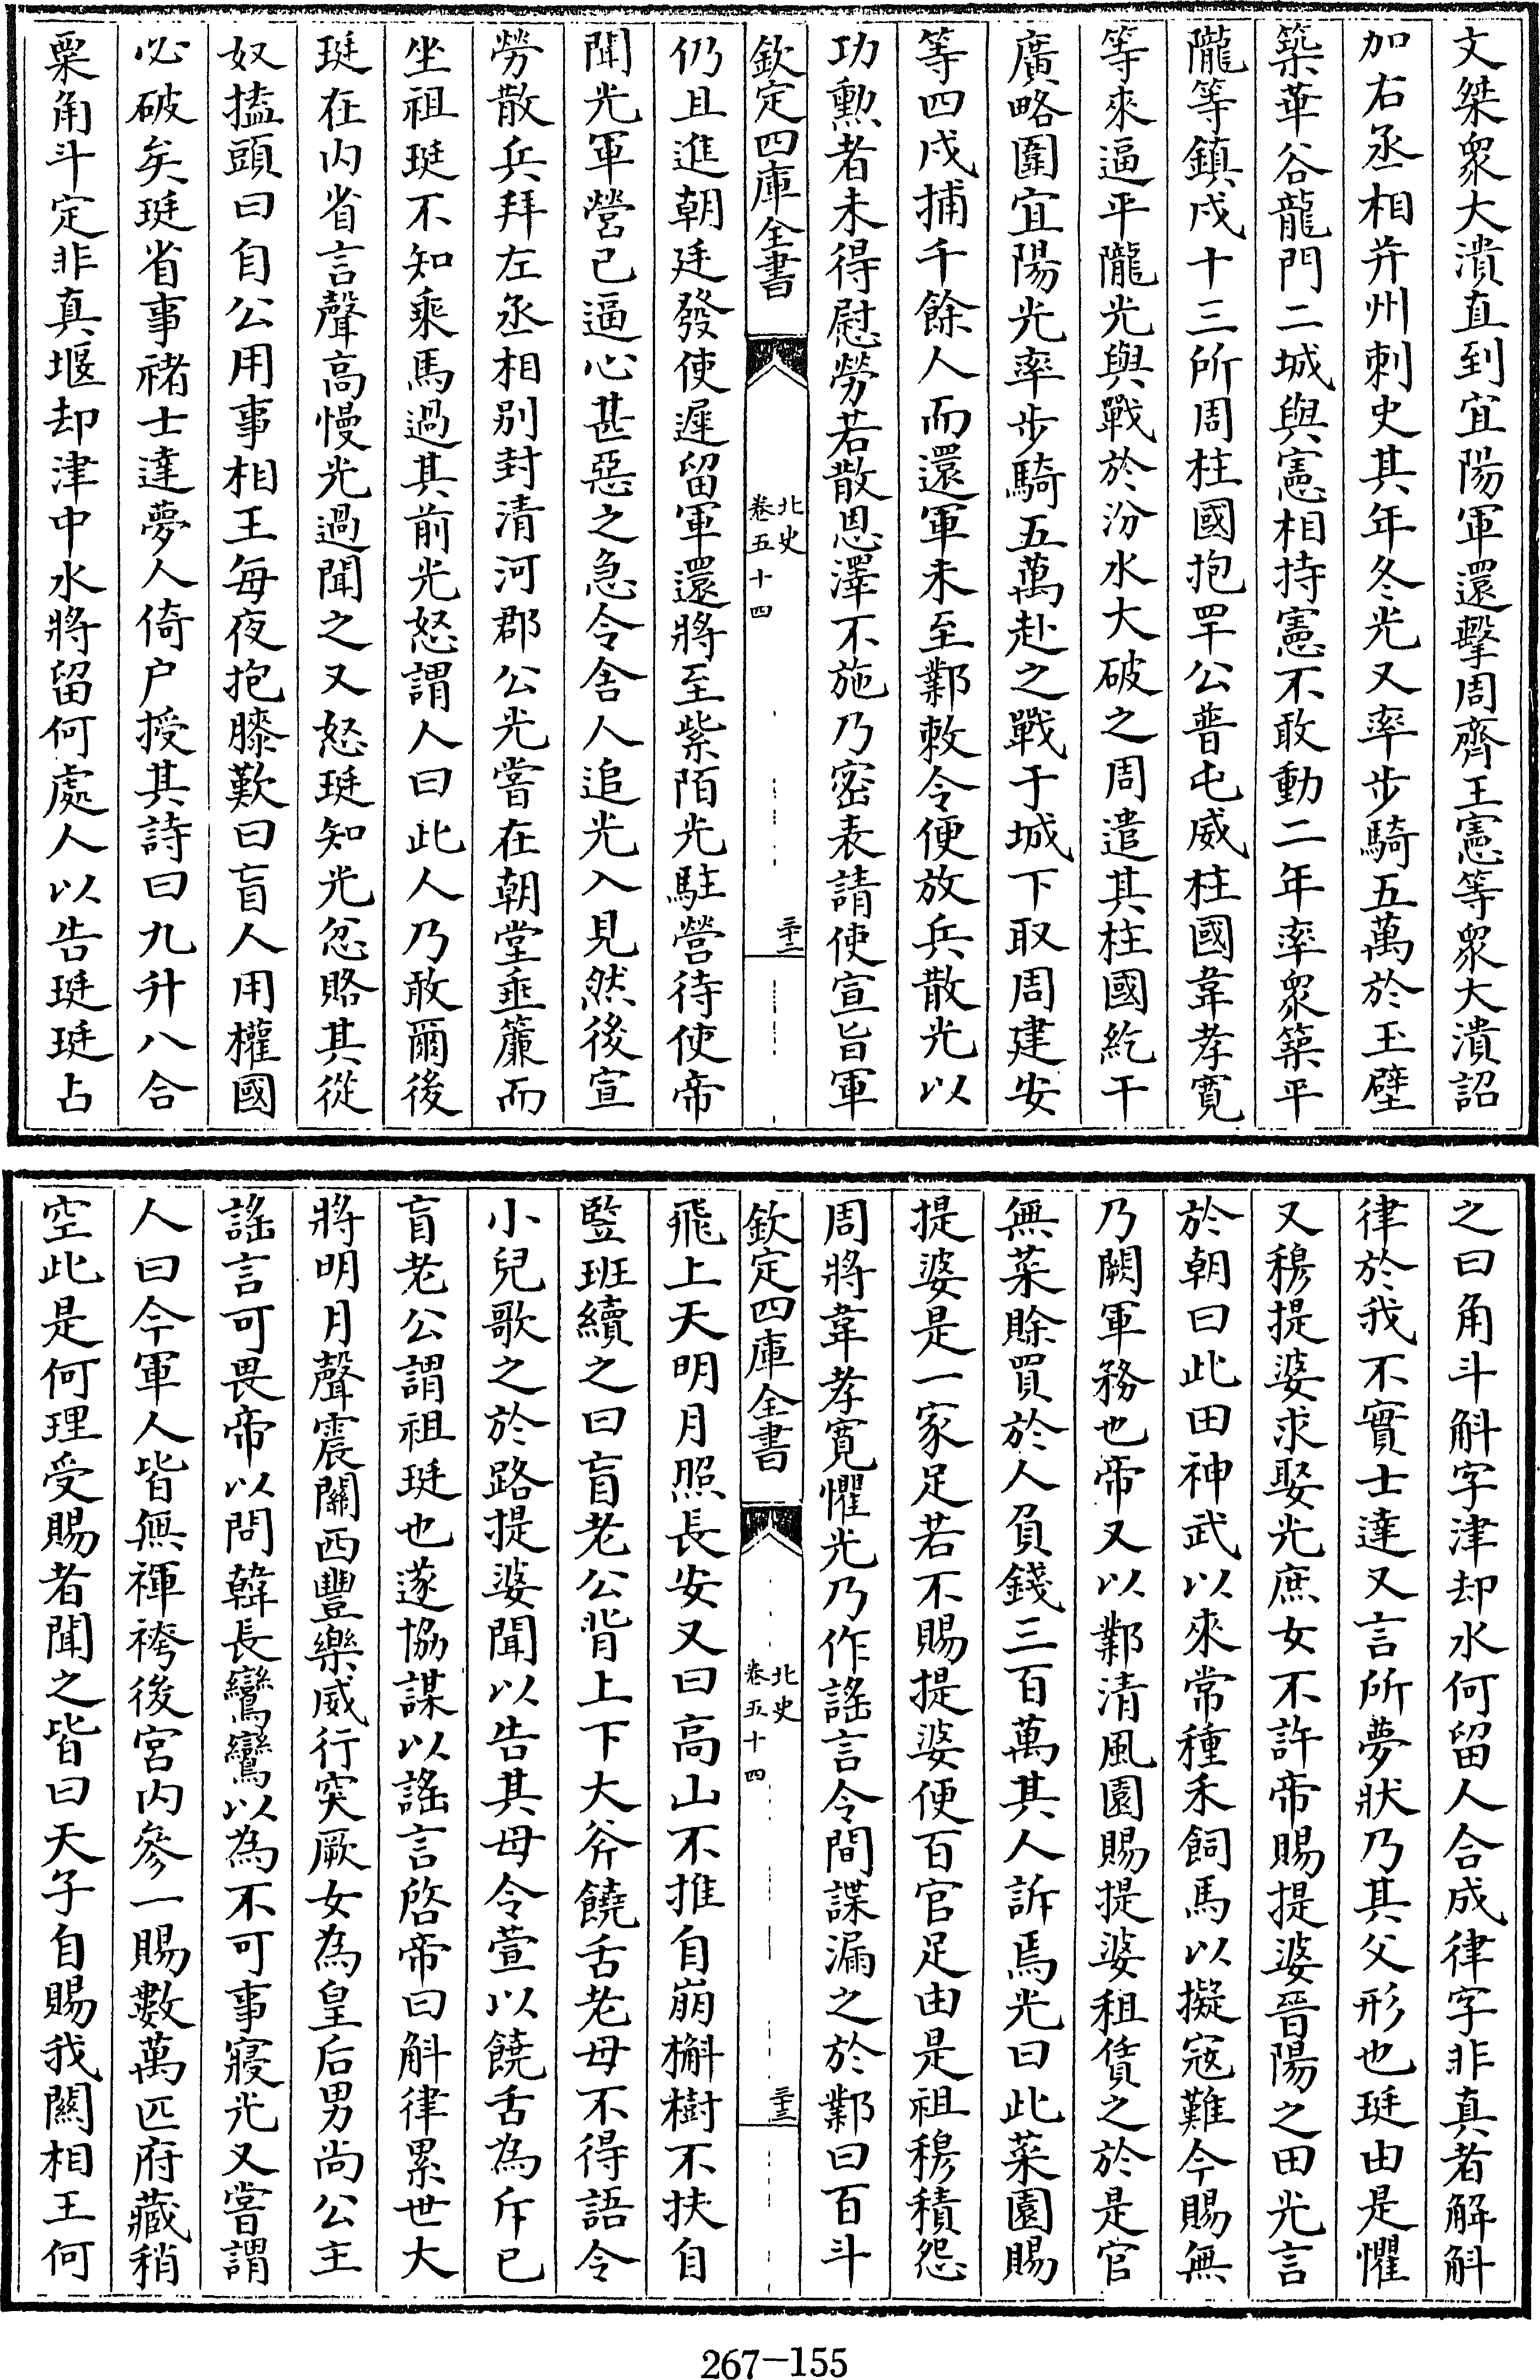 文桀衆大潰直到宜陽軍還擊周齊王憲等衆大潰詔
加右丞相并州刺史其年冬光又率步騎五萬於玉壁
築華谷龍門二城與憲相持憲不敢動二年率衆築平
隴等鎮戍十三所周柱國抱罕公普屯威柱國韋孝寛
等來逼平隴光與戰於汾水大破之周遣其柱國紇干
廣略圍宜陽光率步騎五萬赴之戰于城下取周建安
等四戍捕千餘人而還軍未至鄴敕令便放兵散光以
功勲者未得慰勞若散恩澤不施乃密表請使宣旨軍
欽定四庫全書
北史
卷五十四
三十二
仍且進朝廷發使遲留軍還將至紫陌光駐營待使帝
聞光軍營已逼心甚惡之急令舍人追光入見然後宣
勞散兵拜左丞相别封清河郡公光嘗在朝堂垂簾而
坐祖珽不知乘馬過其前光怒謂人曰此人乃敢爾後
珽在内省言聲高慢光過聞之又怒珽知光忿賂其從
奴搕頭曰自公用事相王每夜抱膝歎曰盲人用權國
必破矣珽省事褚士達夢人倚户授其詩曰九升八合
粟角斗定非真堰却津中水將留何處人以告珽珽占
之曰角斗斛字津却水何留人合成律字非真者解斛
律於我不實士達又言所夢狀乃其父形也珽由是懼
又穆提婆求娶光庶女不許帝賜提婆晉陽之田光言
於朝曰此田神武以來常種禾飼馬以擬寇難今賜無
乃闕軍務也帝又以鄴清風園賜提婆租賃之於是官
無菜賒買於人負錢三百萬其人訴焉光曰此菜園賜
提婆是一家足若不賜提婆便百官足由是祖穆積怨
周將韋孝寛懼光乃作謠言令間諜漏之於鄴曰百斗
欽定四庫全書
北史
卷五十四
三十三
飛上天明月照長安又曰高山不推自崩槲樹不扶自
豎珽續之曰盲老公背上下大斧饒舌老母不得語令
小兒歌之於路提婆聞以告其母令萱以饒舌為斥已
盲老公謂祖珽也遂協謀以謠言啓帝曰斛律累世大
將明月聲震關西豐樂威行突厥女為皇后男尚公主
謠言可畏帝以問韓長鸞鸞以為不可事寢光又嘗謂
人曰今軍人皆無褌袴後宮内參一賜數萬匹府藏稍
空此是何理受賜者聞之皆曰天子自賜我關相王何
267-155